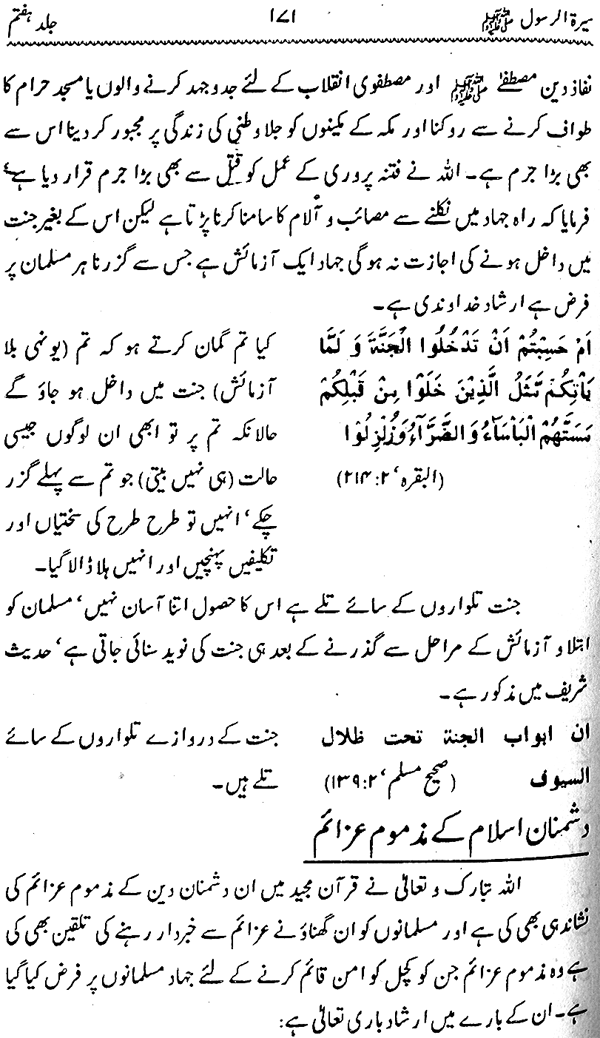 سیرۃ الرسول ﷺ ۱۷۱ جلد ہفتم
نفاذ دین مصطفےٰ ﷺ اور مصطفوی انقلاب کے لئے جدوجہد کرنے والوں یا مسجد حرام کا
طواف کرنے سے روکنا اور مکہ کے مکینوں کو جلا وطنی کی زندگی پر مجبور کر دینا اس سے
بھی بڑا جرم ہے۔ اللہ نے فتنہ پروری کے عمل کو قتل سے بھی بڑا جرم قرار دیا ہے
فرمایا کہ راہ جہاد میں نکلنے سے مصائب و آلام کا سامنا کرنا پڑتا ہے لیکن اس کے بغیر جنت
میں داخل ہونے کی اجازت نہ ہوگی جہاد ایک آزمائش ہے جس سے گزرنا ہر مسلمان پر
فرض ہے ارشاد خداوندی ہے۔
اَمْ حَسِبْتُمْ اَنْ تَدْخُلُوا الْجَنَّةَ وَ لَمَّا
يَاْتِكُمْ مَّثَلُ الَّذِيْنَ خَلَوْا مِنْ قَبْلِكُمْ
مَسَّتْهُمُ الْبَاْسَآءُ وَ الضَّرَّآءُ وَ زُلْزِلُوْا
(البقرہ‘ ۲:۲۱۴)
کیا تم گمان کرتے ہو کہ تم (یونہی بلا
آزمائش) جنت میں داخل ہو جاؤ گے
حالانکہ تم پر تو ابھی ان لوگوں جیسی
حالت (ہی نہیں بیتی) جو تم سے پہلے گزر
چکے‘ انہیں تو طرح طرح کی سختیاں اور
تکلیفیں پہنچیں اور انہیں ہلا ڈالا گیا۔
جنت تلواروں کے سائے تلے ہے اس کا حصول اتنا آسان نہیں‘ مسلمان کو
ابتلا و آزمائش کے مراحل سے گذرنے کے بعد ہی جنت کی نوید سنائی جاتی ہے‘ حدیث
شریف میں مذکور ہے۔
ان ابواب الجنة تحت ظلال
السيوف (صحیح مسلم‘ ۲:۱۳۹)
جنت کے دروازے تلواروں کے سائے
تلے ہیں۔
دشمنان اسلام کے مذموم عزائم
اللہ تبارک و تعالیٰ نے قرآن مجید میں ان دشمنان دین کے مذموم عزائم کی
نشاندہی بھی کی ہے اور مسلمانوں کو ان گھناؤنے عزائم سے خبردار رہنے کی تلقین بھی کی
ہے وہ مذموم عزائم جن کو کچل کو امن قائم کرنے کے لئے جہاد مسلمانوں پر فرض کیا گیا
ہے۔ ان کے بارے میں ارشاد باری تعالیٰ ہے: